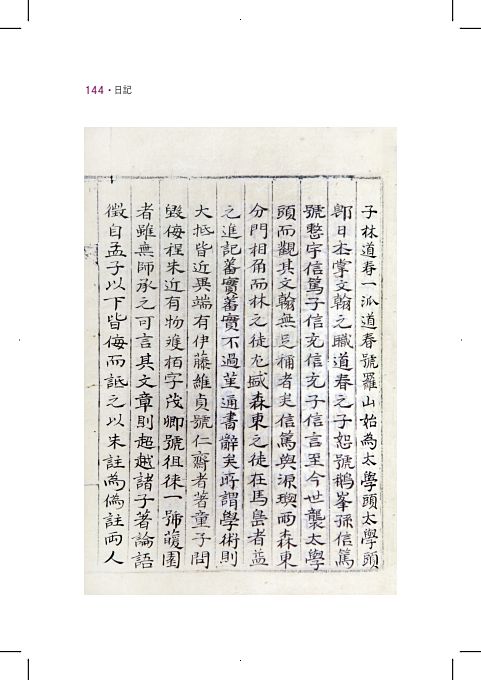 144・日記
子林道春一派道春號羅山始為太學頭太學頭
郭曰丕掌文翰之職道春之子恕號鵝峯孫信篤
號整宇信篤子信充信充子信言至今世襲太學
頭而觀其文翰無足稱者矣信篤與源璵兩森東
分門相角而林之徒尤盛森東之徒在馬島者益
之進記蕃實蕃實不過堇通書辭矣所謂學術則
大抵皆近異端有伊藤維貞號仁齋者著童子問
毀侮程朱近有物雙栢字茂卿號徂徠一號蘐園
者雖無師承之可言其文章則超越諸子著論語
徵自孟子以下皆侮而詆之以朱註為僞註兩人